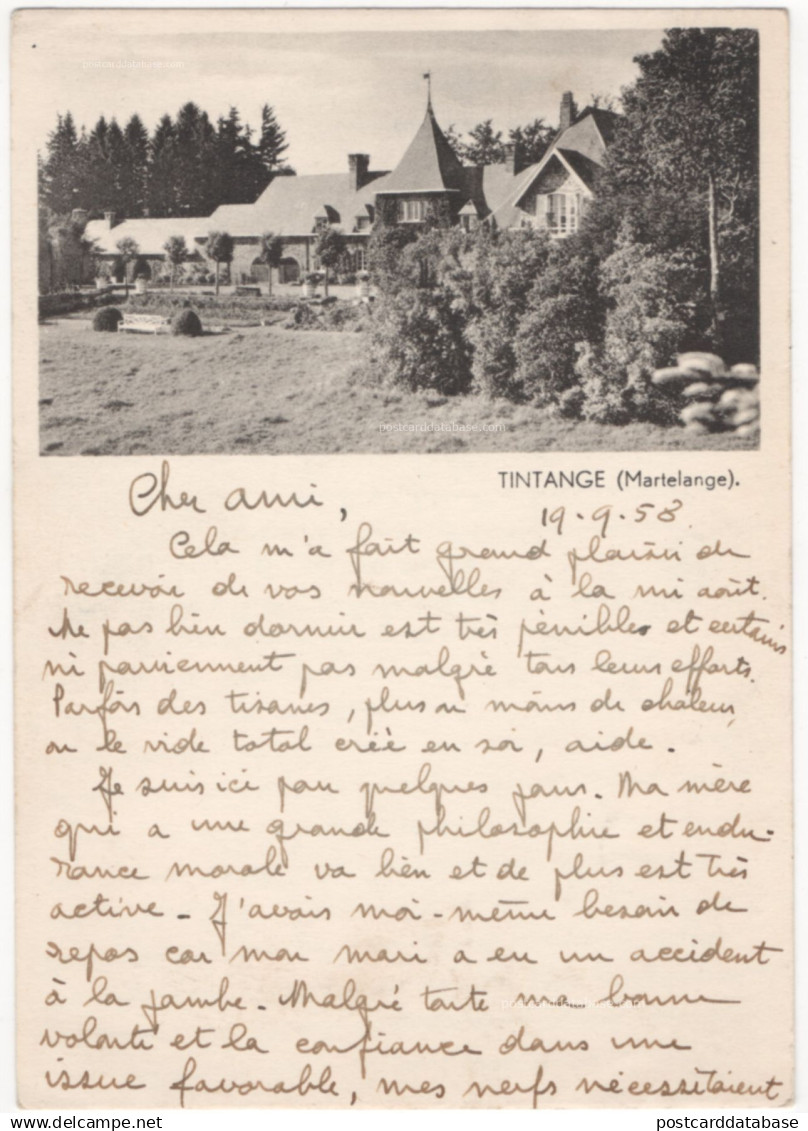 postcarddatabase.com
postcarddatabase.com
TINTANGE (Martelange).
Cher ami,
19.9.58
Cela m'a fait grand plaisir de
recevoir de vos nouvelles à la mi août.
Ne pas bien dormir est très pénible et certains
ni parviennent pas malgré tous leurs efforts.
Parfois des tisanes, plus ou moins de chaleur,
ou le vide total créé en soi, aide.
Je suis ici pour quelques jours. Ma mère
qui a une grande philosophie et endu-
rance morale va bien et de plus est très
active - J'avais moi-même besoin de
repos car mon mari a eu un accident
à la jambe. Malgré toute ma bonne
postcarddatabase.com
volonté et la confiance dans une
issue favorable, mes nerfs nécessitaient
postcarddatabase